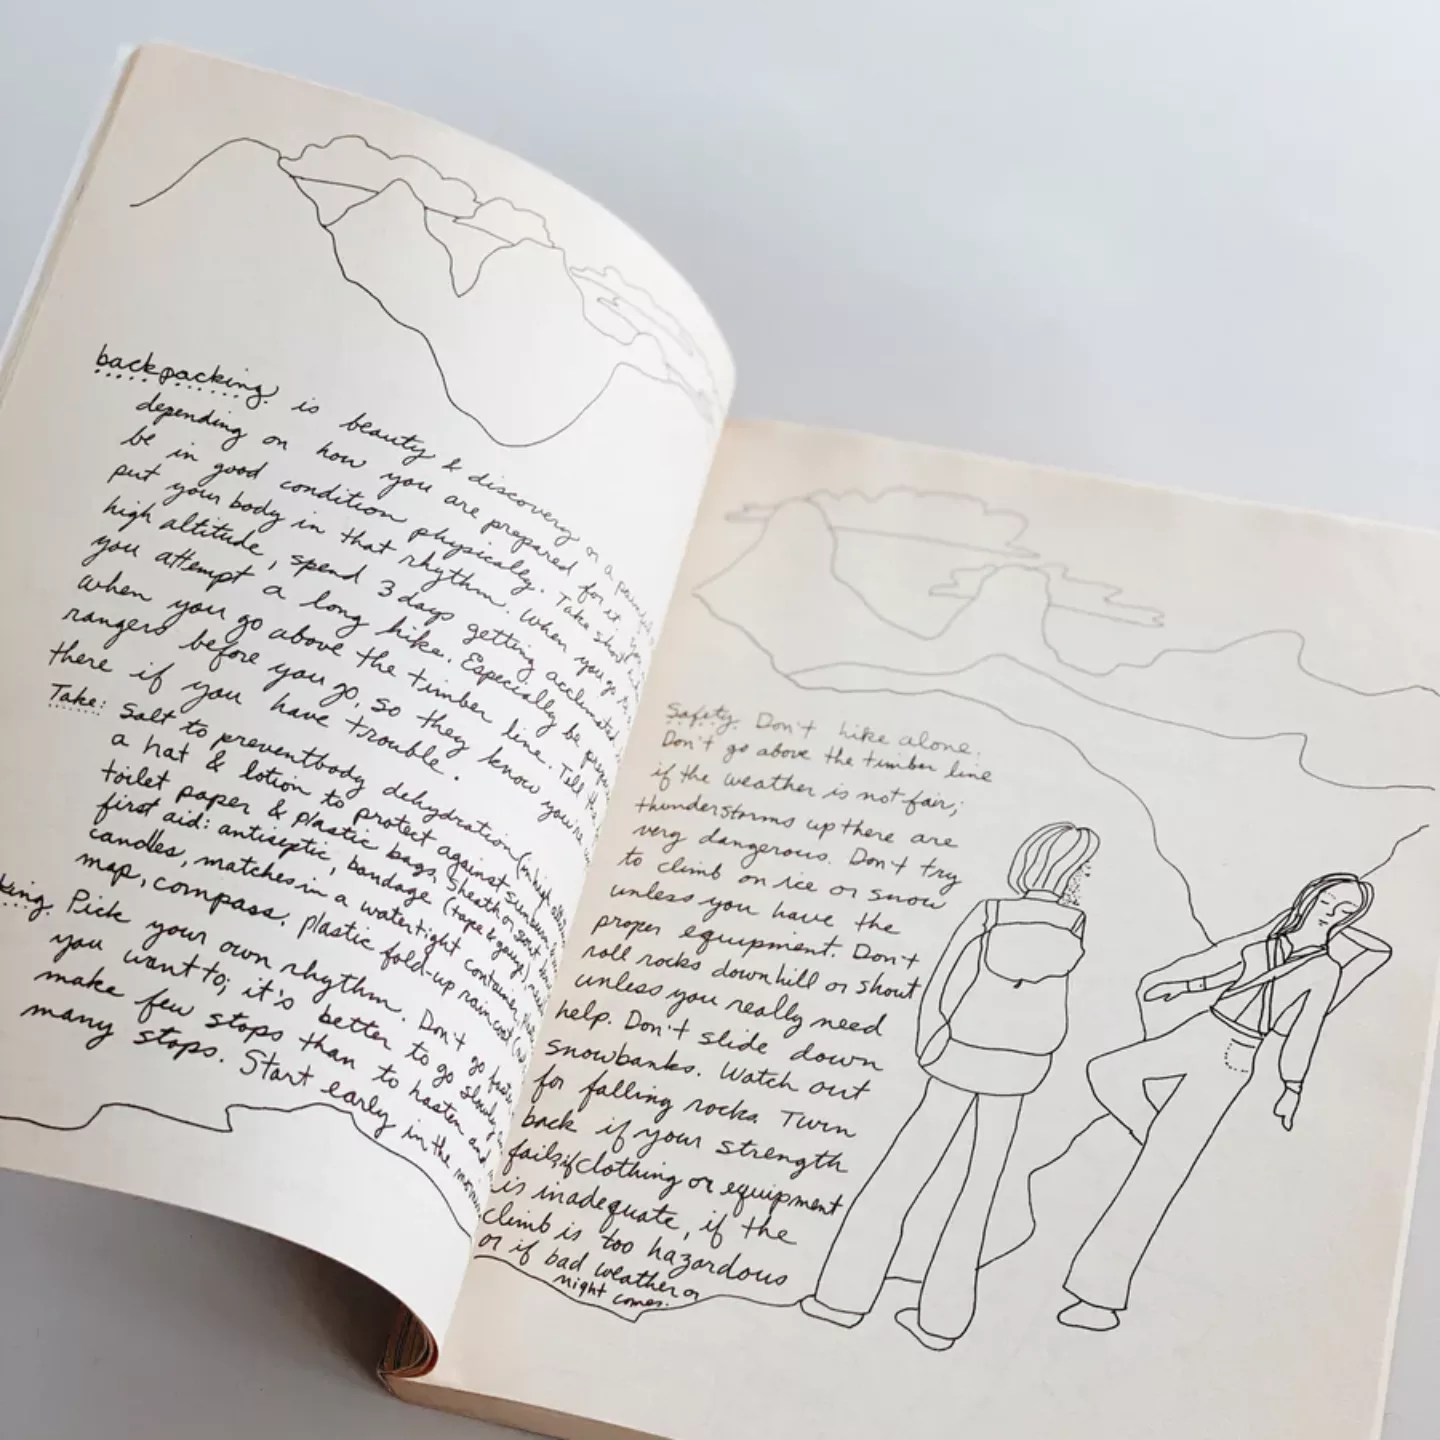 backpacking is beauty & discovery or a painful
depending on how you are prepared for it. You
be in good condition physically. Take short
put your body in that rhythm. When you go to
high altitude, spend 3 days getting acclimated
you attempt a long hike. Especially be prepa
when you go above the timber line. Tell the
rangers before you go, so they know you're
there if you have trouble.
Take: Salt to preventbody dehydration (in high
a hat & lotion to protect against sunburn
toilet paper & plastic bags, sheath or
first aid: antiseptic, bandage (tape & gauze)
candles, matches in a watertight container
map, compass, plastic fold-up raincoat
king. Pick your own rhythm. Don't go faster
you want to; it's better to go slowly
make few stops than to hasten and
many stops. Start early in the morning
Safety. Don't hike alone.
Don't go above the timber line
if the weather is not fair;
thunderstorms up there are
very dangerous. Don't try
to climb on ice or snow
unless you have the
proper equipment. Don't
roll rocks downhill or shout
unless you really need
help. Don't slide down
snowbanks. Watch out
for falling rocks. Turn
back if your strength
fails, if clothing or equipment
is inadequate, if the
climb is too hazardous
or if bad weather or
night comes.